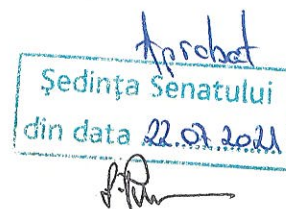 Aprobat
Ședința Senatului
din data 22.07.2021